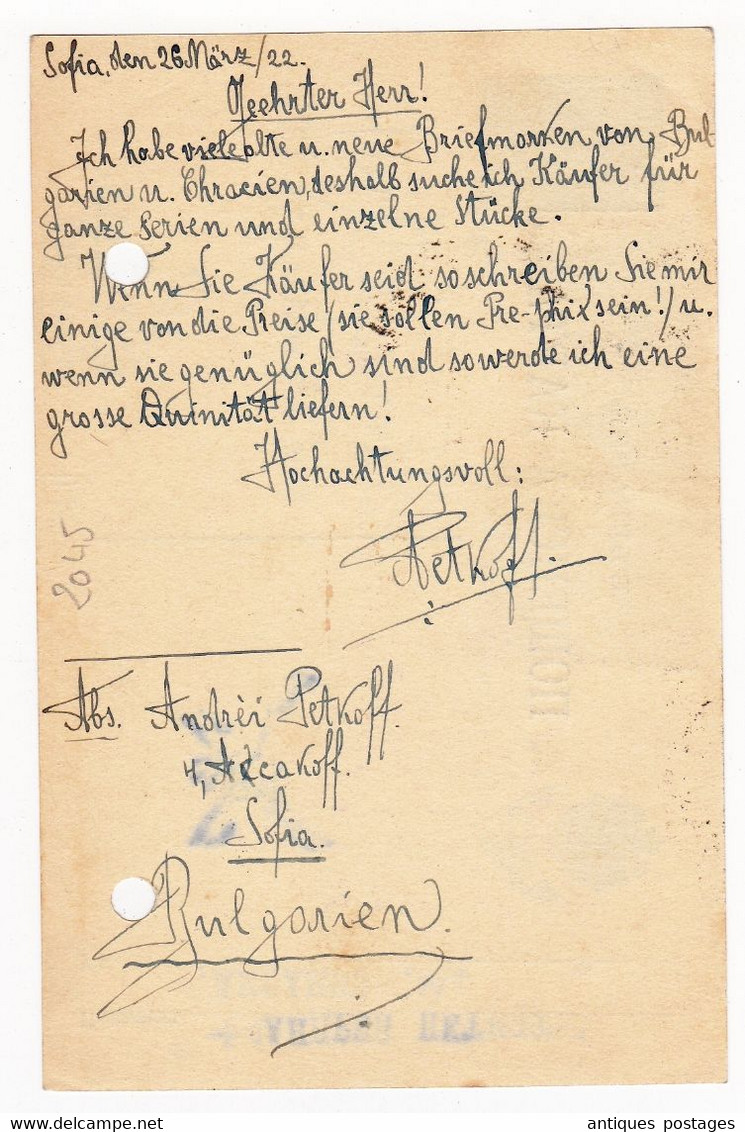 Sofia, den 26 März/22.
Geehrter Herr!
Ich habe viele alte u. neue Briefmarken von Bul-
garien u. Thracien, deshalb suche ich Käufer für
ganze Serien und einzelne Stücke.
Wenn Sie Käufer seid so schreiben Sie mir
einige von die Preise / sie sollen Pre-phix sein! / u.
wenn sie genüglich sind so werde ich eine
grosse Quinität liefern!
Hochachtungsvoll:
Petkoff.
2045
Abs. Andrèi Petkoff.
4, Accakoff.
Sofia.
Bulgarien.
antiques postages